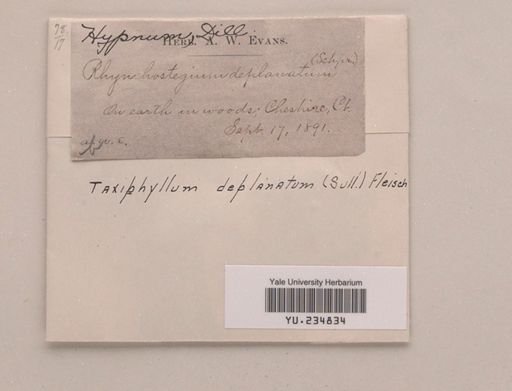 78
17
Hypnum, Dill.
HERB. A. W. EVANS.
(Schpr.)
Rhynchostegium deplanatum
On earth in woods, Cheshire, Ct.
Sept. 17, 1891.
Taxiphyllum deplanatum (Sull.) Fleisch
Yale University Herbarium
YU.234834